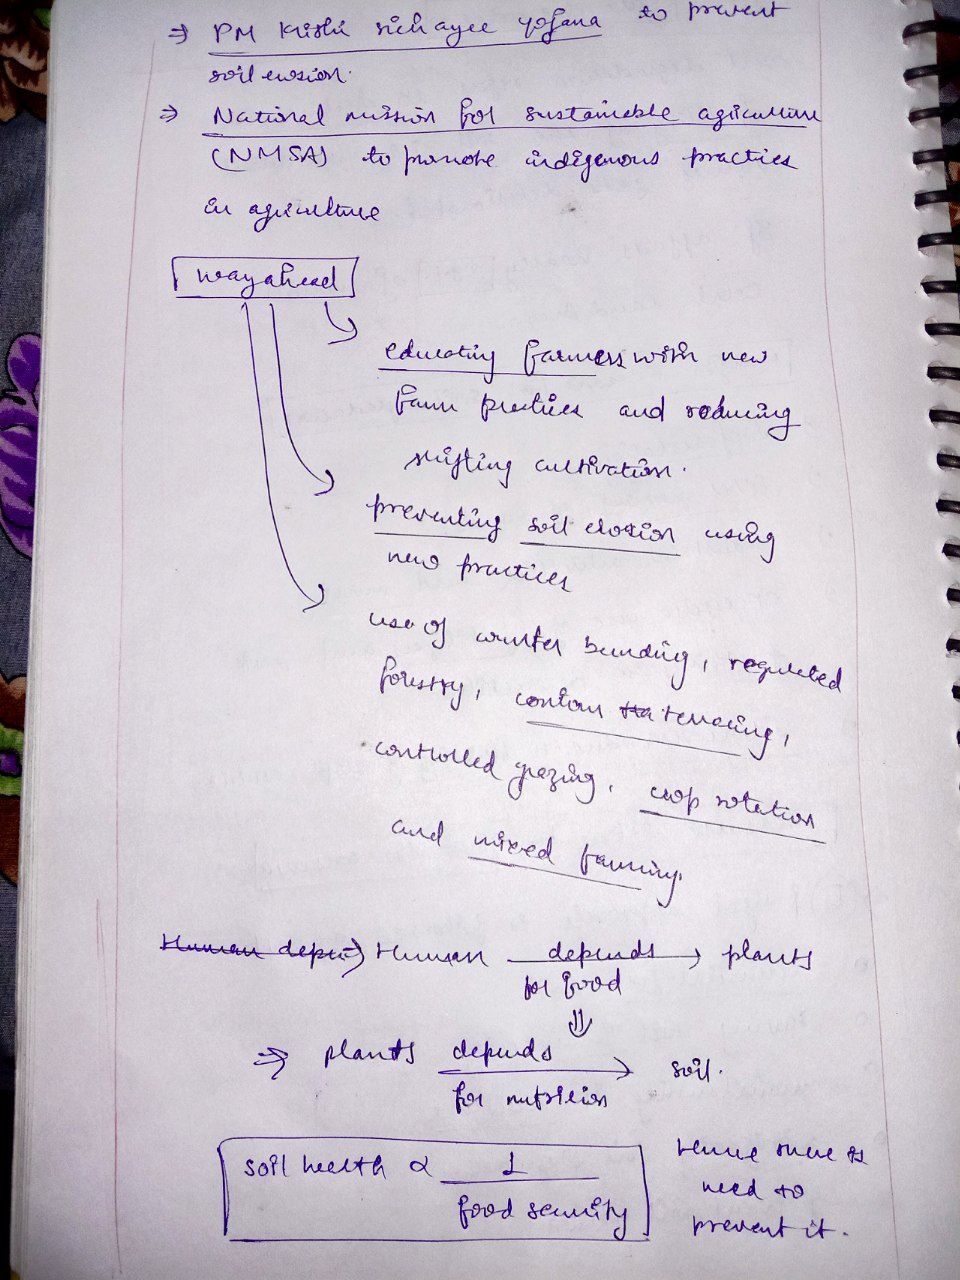 ⇒ PM Krishi sichayee yojana to prevent
soil erosion.
⇒ National mission for sustainable agriculture
(NMSA) to promote indigenous practices
in agriculture
way ahead
educating farmers with new
farm practices and reducing
shifting cultivation.
preventing soil erosion using
new practices
use of bunding, regulated
forestry, contour terracing,
controlled grazing, crop rotation
and mixed farming.
Human depends → plants
for food
⇓
⇒ plants depends → soil.
for nutrition
soil health ∝ 1
food security
Hence there is
need to
prevent it.